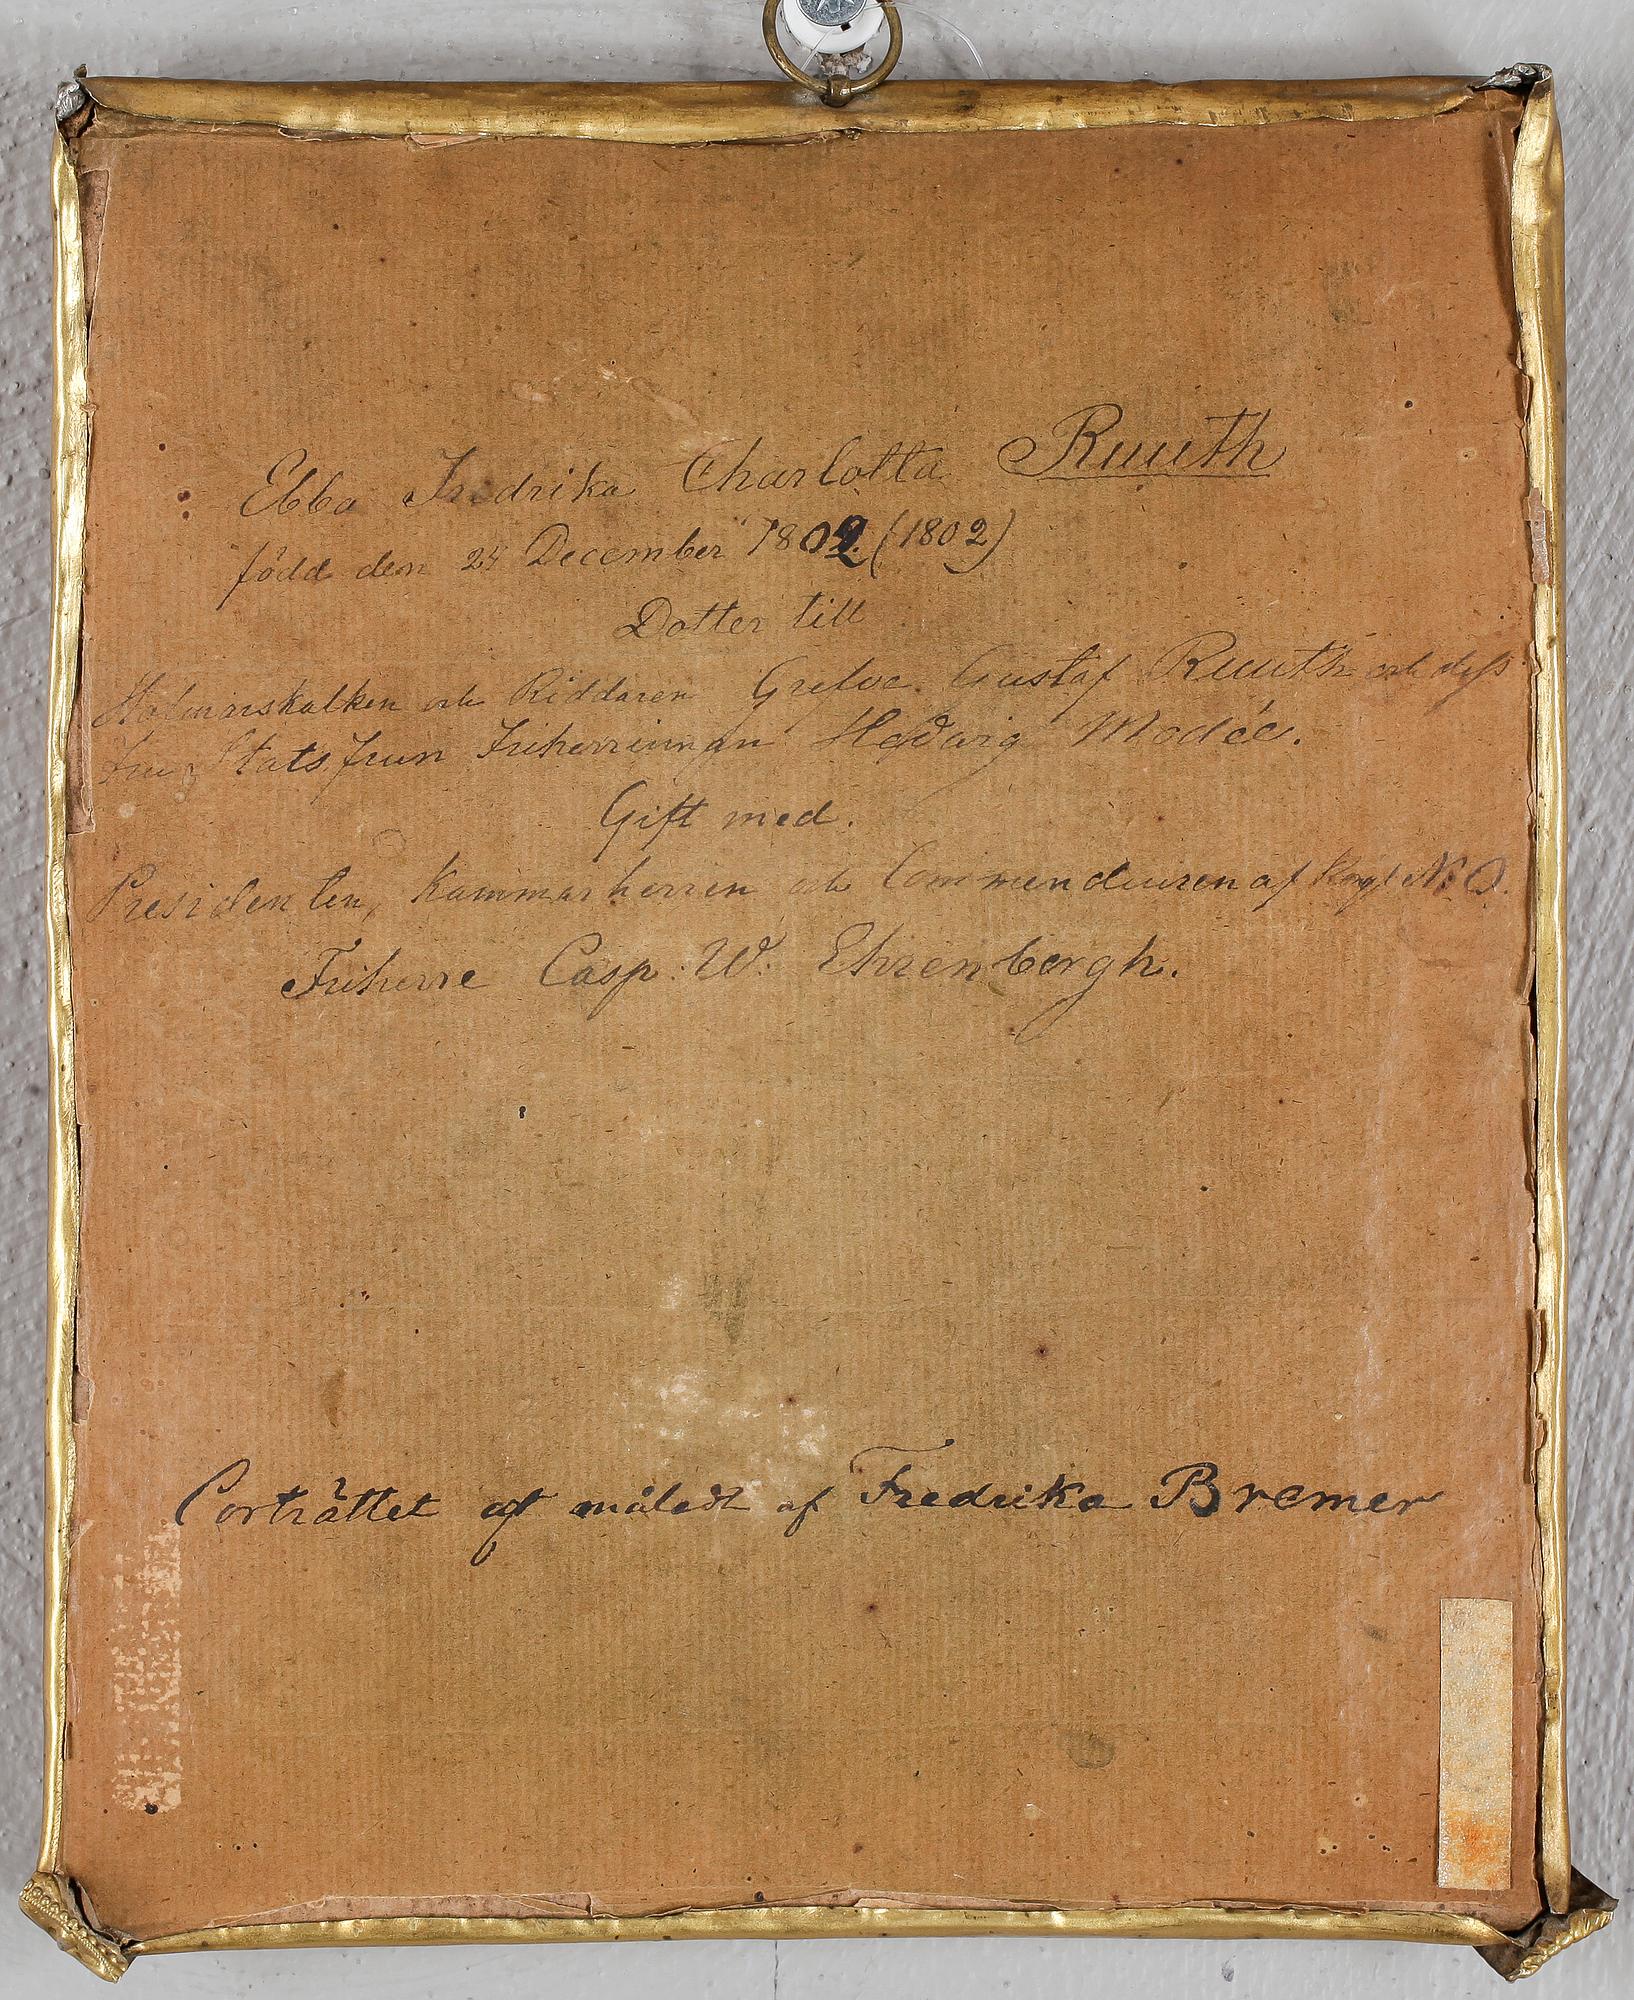 Ebba Fredrika Charlotta Ruuth
född den 24 December 1802. (1802)
Dotter till
Hofmarskalken och Riddaren Grefve Gustaf Ruuth och dess
fru, Statsfrun Friherrinnan Hedvig Modée.
Gift med.
Presidenten, Kammarherren och Commendeuren af Kongl N: O.
Friherre Casp: W: Ehrenborgh.
Porträttet af måladt af Fredrika Bremer